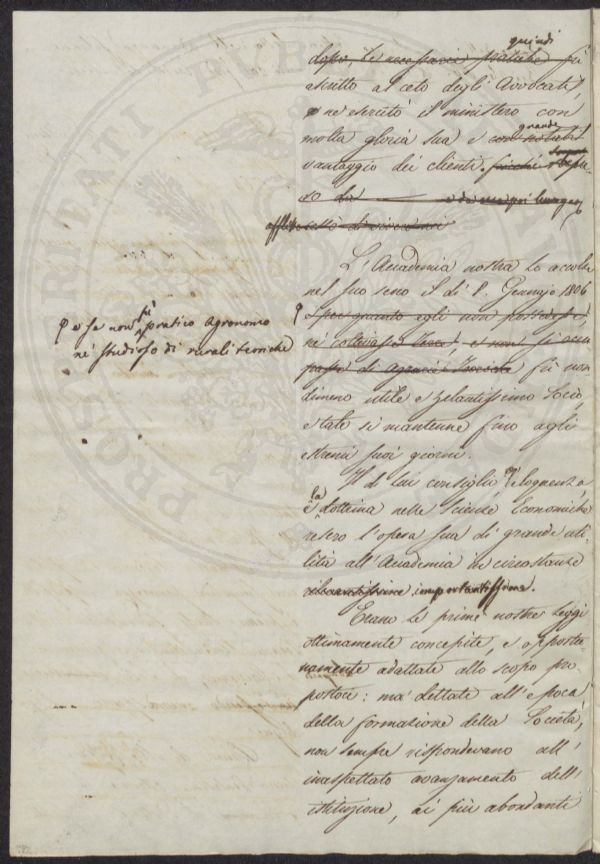 quindi
dopo le necessarie pratiche fu
ascritto al ceto degli Avvocati,
e ne esercitò il ministero con
molta gloria sua e con notabil
grande
vantaggio dei clienti. finchè
so da e da
afflitto
L'Accademia nostra lo accolse
nel suo seno il dì 8. Gennajo 1806
e per quanto egli non possedesse,
nè coltivasse Terre, e non si occu
passe di agrarie Teorie fu non
dimeno utile e zelantissimo Socio,
e tale si mantenne fino agli
estremi suoi giorni.
e se non fu pratico Agronomo
nè studioso di rurali teoriche
Il di lui consiglio, l'eloquenza,
e la dottrina nelle scienze Economiche
resero l'opera sua di grande uti-
lità all'Accademia in circostanze
rilevantissime importantissime.
Erano le prime nostre Leggi
ottimamente concepite, e opportu
namente adattate allo scopo pro
postoci: ma dettate all'epoca
della formazione della Società,
non sempre rispondevano all'
inaspettato avanzamento dell'
istituzione, ai più abbondanti
PROSPERITATI PUBLICAE